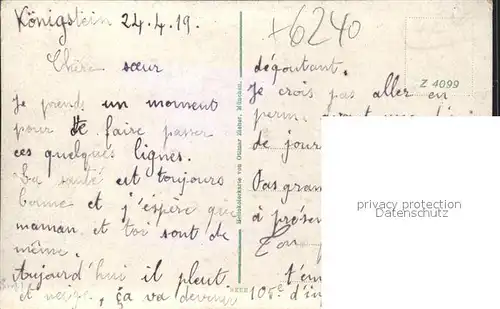 Königstein 24.4.19.
+6240
Z 4099
Chère sœur
Je prends un moment
pour te faire passer
ces quelques lignes.
La santé est toujours
bonne et j'espère que
maman et toi sont de
même.
Aujourd'hui il pleut
et neige, ça va devenir
dégoutant.
Je crois pas aller en
perm. avant une
de jour
Pas gran
à présen
Ton
t'em
105e d'in
privacy protection
Datenschutz